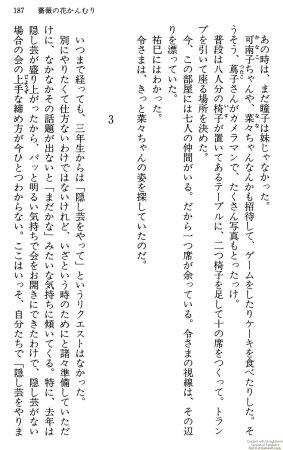 187　薔薇の花かんむり
あの時は、まだ瞳子は妹じゃなかった。
可南子ちゃんや、菜々ちゃんなんかも招待して、ゲームをしたりケーキを食べたりした。そ
うそう、蔦子さんがカメラマンで、たくさん写真もとったっけ。
普段は八人分の椅子が置いてあるテーブルに、二つ椅子を足して十の席をつくって。トラン
プを引いて座る場所を決めた。
今、この部屋には七人の仲間がいる。だから一つ席が余っている。令さまの視線は、その辺
りを漂っていた。
祐巳にはわかった。
令さまは、きっと菜々ちゃんの姿を探していたのだ。
3
いつまで経っても、三年生からは「隠し芸をやって」というリクエストはなかった。
別にやりたくて仕方ないわけではないけれど、いざという時のためにと諸々準備していただ
けに、なかなかその話題が出ないと「まだかな」みたいな気持ちに傾いてくる。特に、去年は
隠し芸が盛り上がったから、パッと明るい気持ちで会をお開きにできたわけで、隠し芸がない
場合の会の上手な締め方が今ひとつわからない。ここはいっそ、自分たちで「隠し芸をやりま